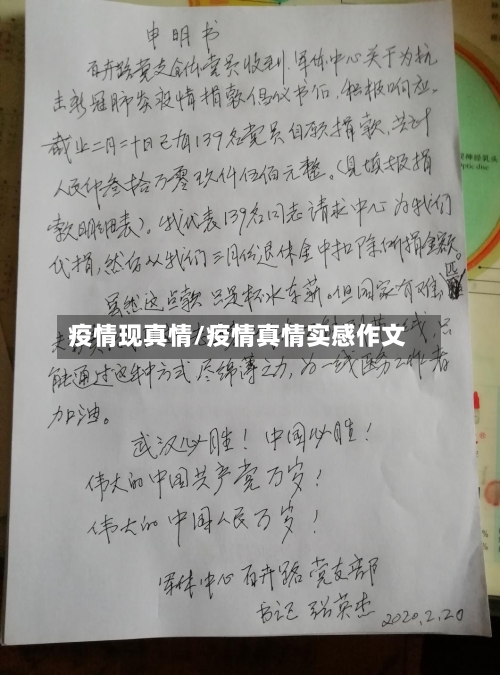 申明书
百卉路党支全体党员收到.军休中心关于为抗
击新冠肺炎疫情捐款倡议书后,积极响应。
截止二月二十日已有139名党员自愿捐款,共计
人民币叁拾万零玖仟伍佰元整。(见城报捐
款明细表)。我代表139名同志请求中心为我们
代捐,然后从我们三月份退休金中扣除所捐金额。
虽然这点款只是杯水车薪。但国家有难匹
疫情现真情/疫情真情实感作文
能通过这种方式尽绵薄之力,为一线医务工作者
加油。
武汉必胜!中国必胜!
伟大的中国共产党万岁!
伟大的中国人民万岁!
军休中心百卉路党支部
书记 张英杰 2020.2.20